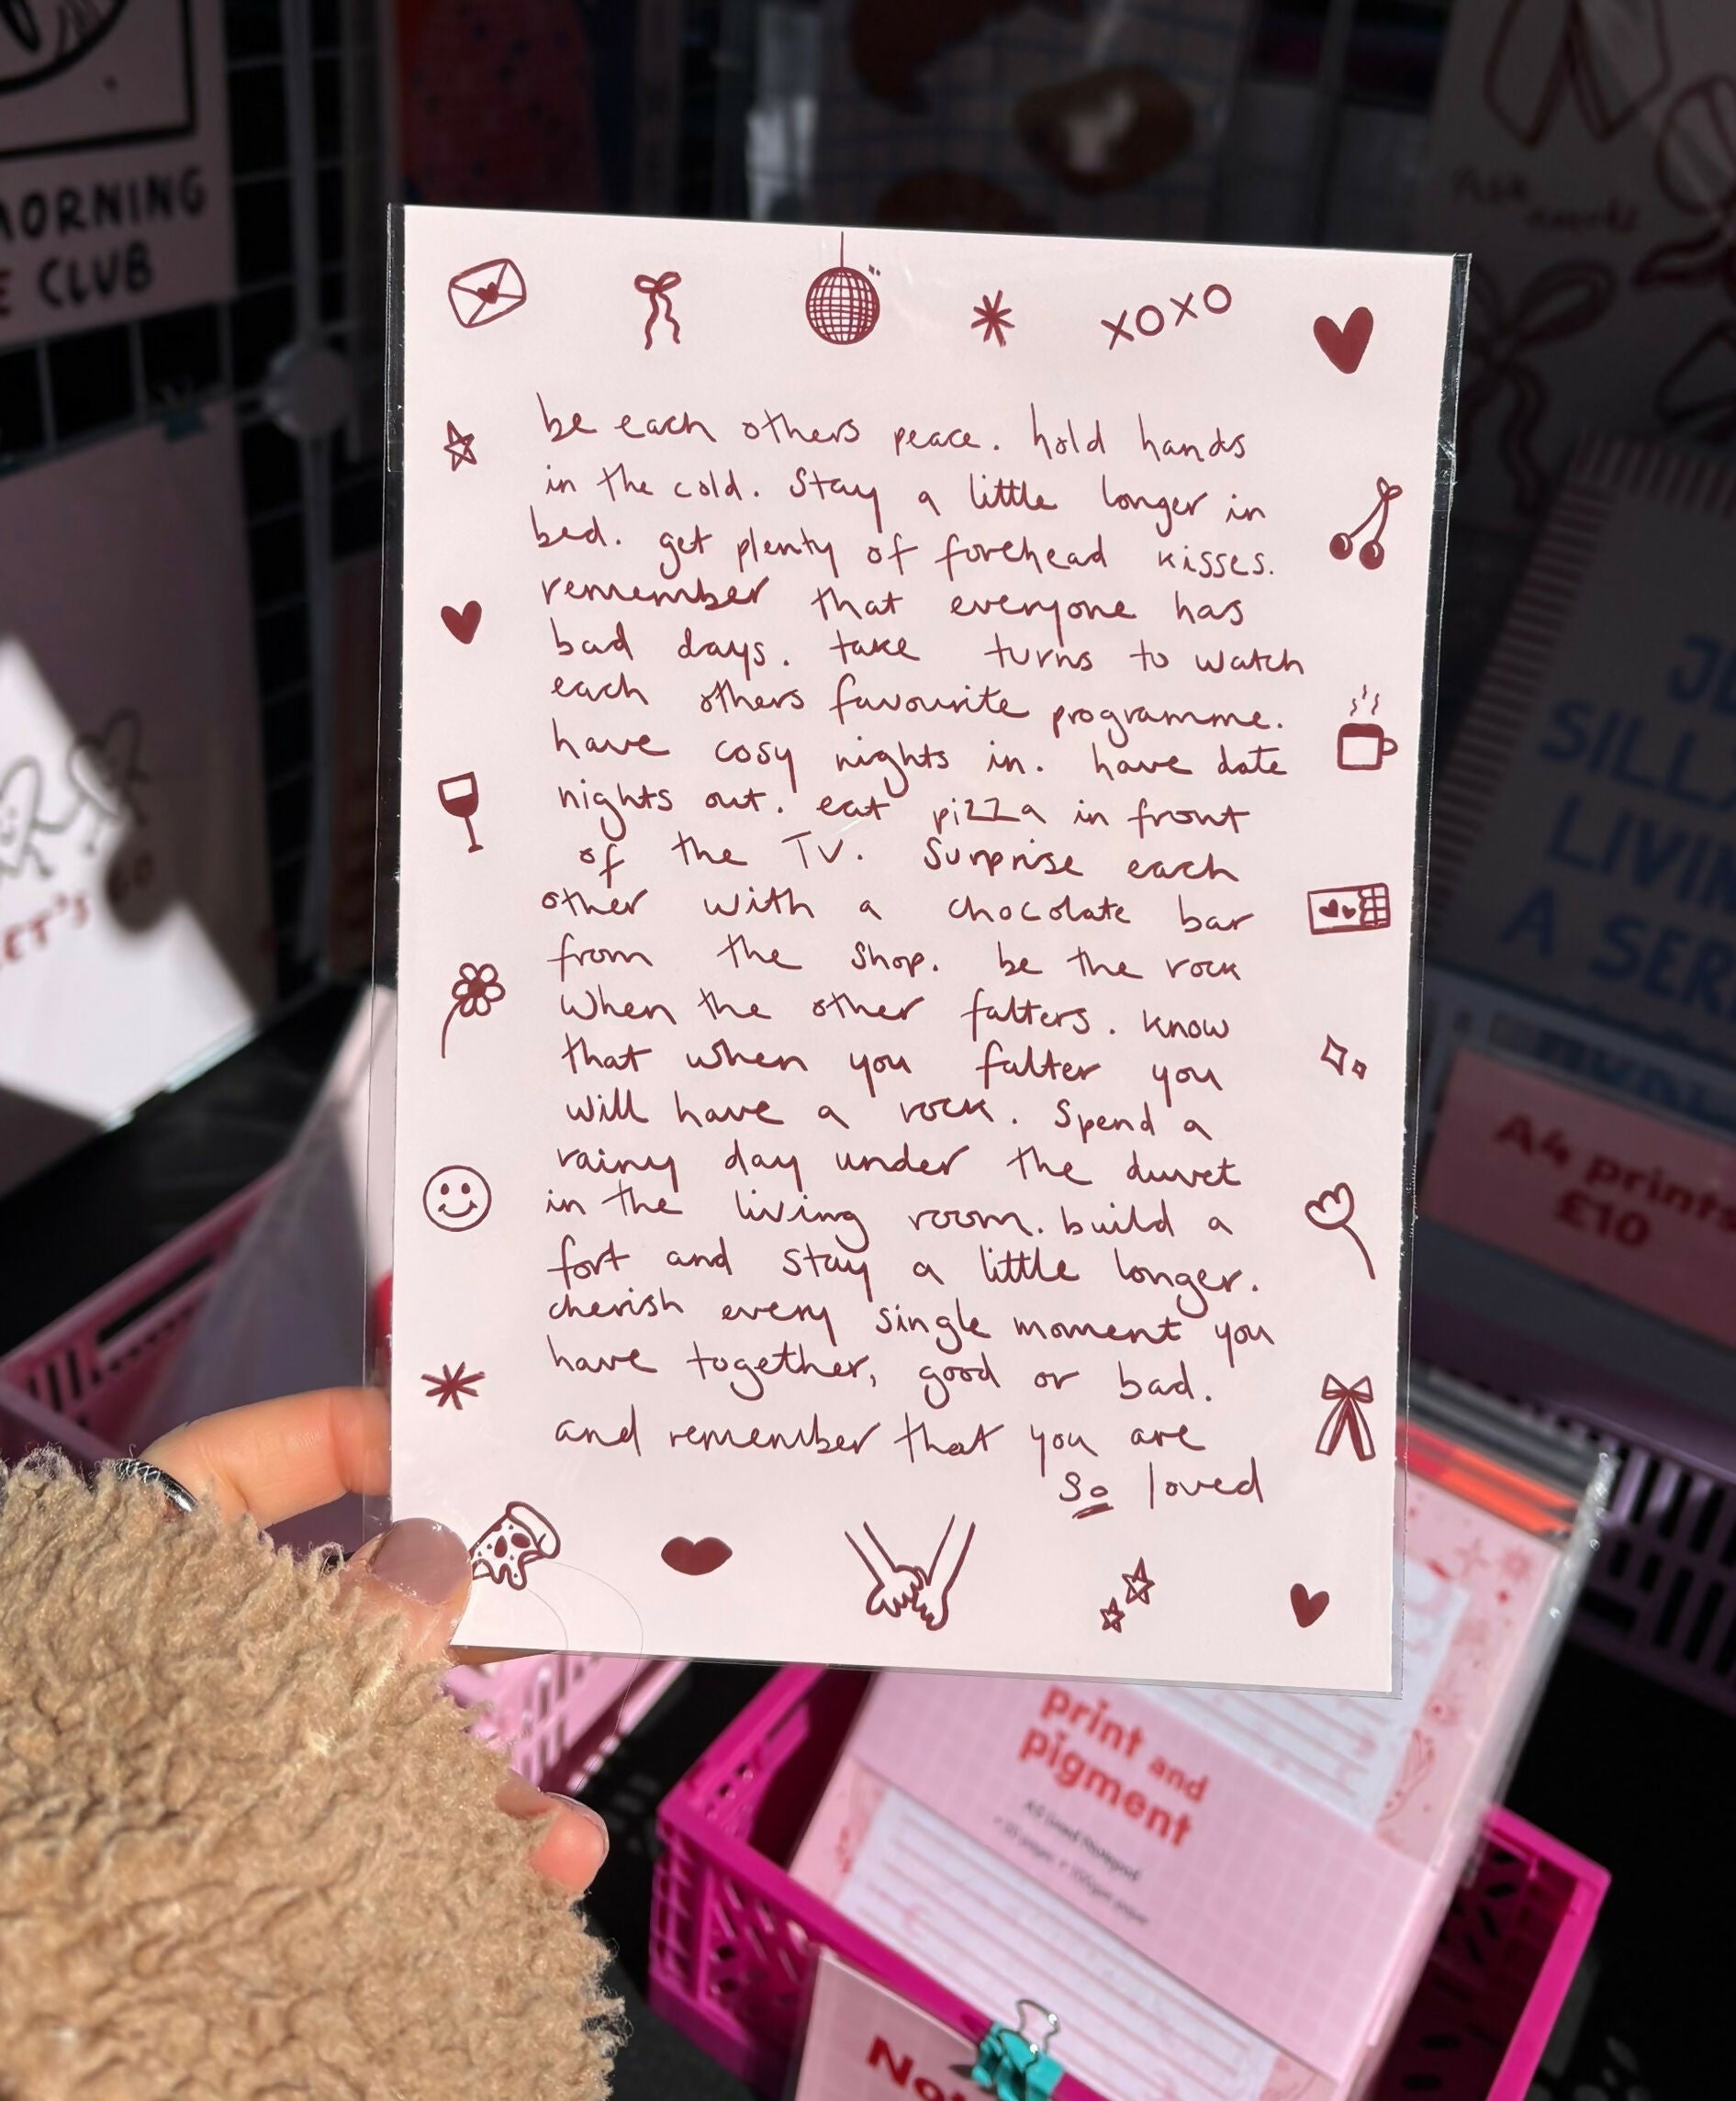 MORNING
CLUB
XOXO
be each others peace. hold hands
in the cold. Stay a little longer in
bed. get plenty of forehead kisses.
remember that everyone has
bad days. take turns to watch
each others favourite programme.
have cosy nights in. have date
nights out. eat pizza in front
of the TV. Surprise each
other with a chocolate bar
from the shop. be the rock
when the other falters. know
that when you falter you
will have a rock. Spend a
rainy day under the duvet
in the living room. build a
fort and stay a little longer.
cherish every single moment you
have together, good or bad.
and remember that you are
So loved
A4 prints
£10
print and
pigment
A5 Lined Notepad